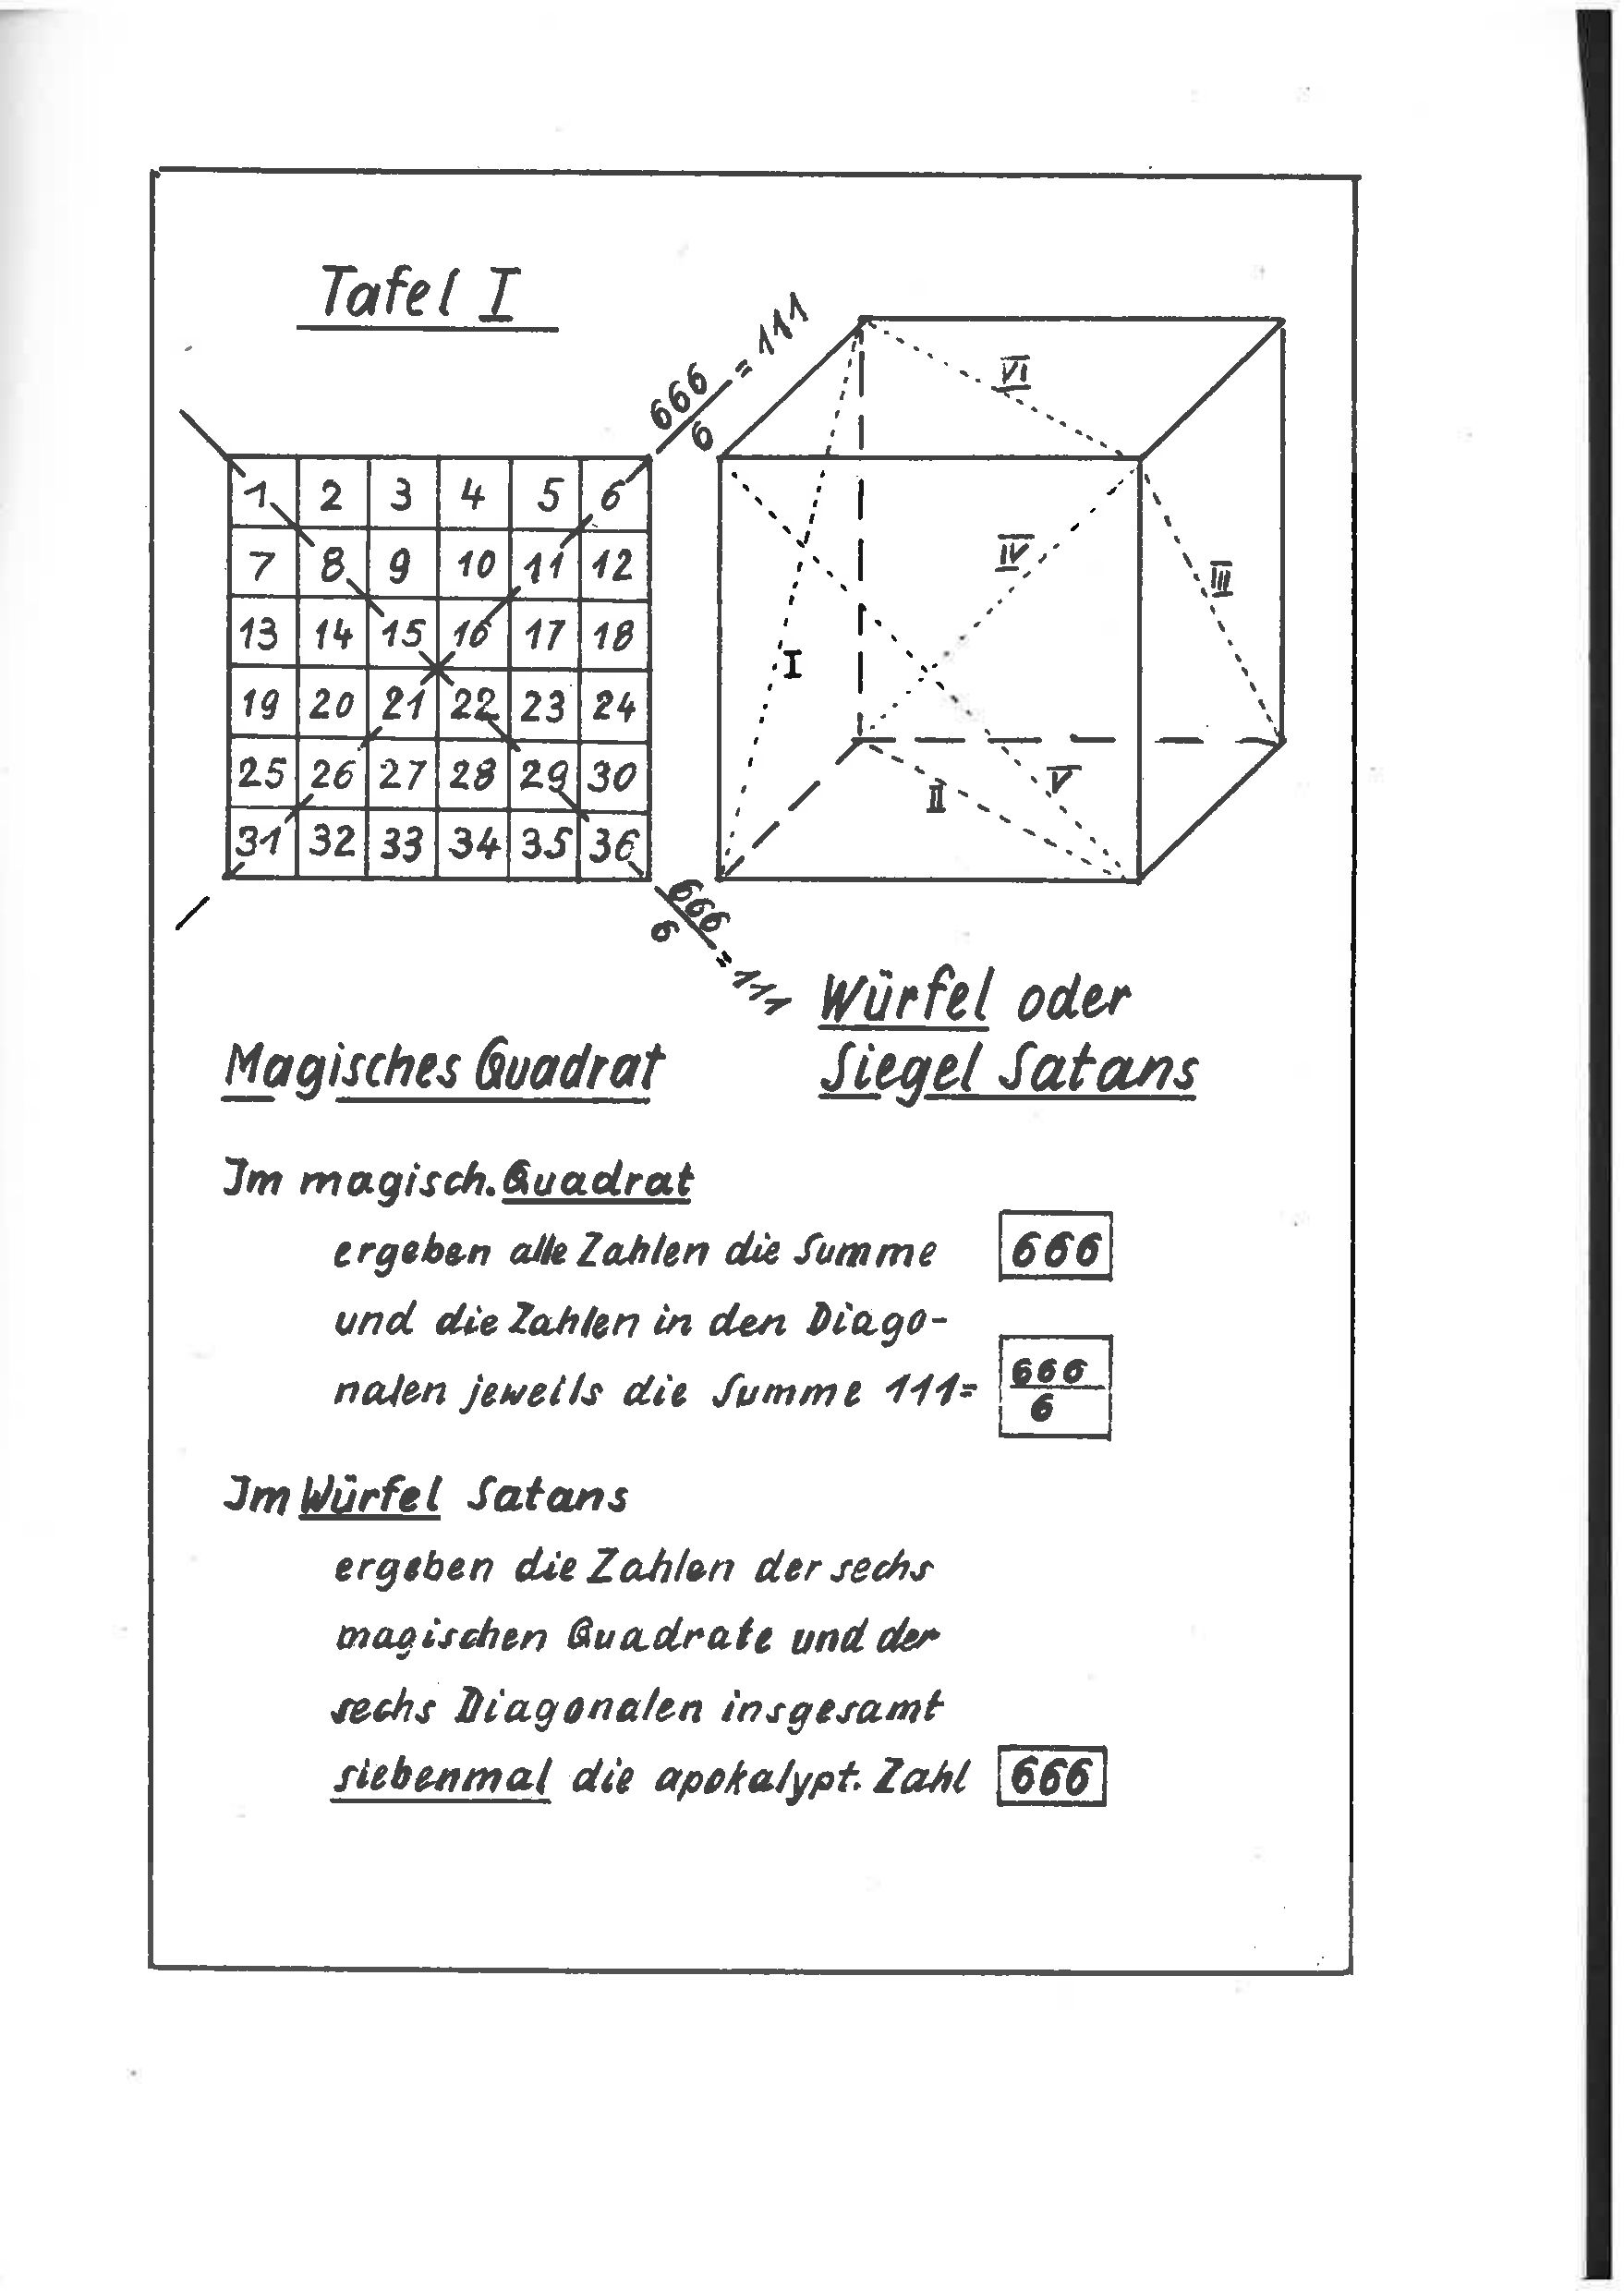 Tafel I
666/6 = 111
1 2 3 4 5 6
7 8 9 10 11 12
13 14 15 16 17 18
19 20 21 22 23 24
25 26 27 28 29 30
31 32 33 34 35 36
666/6 = 111
VI
IV
III
I
V
II
Würfel oder
Siegel Satans
Magisches Quadrat
Im magisch. Quadrat
ergeben alle Zahlen die Summe 666
und die Zahlen in den Diago-
nalen jeweils die Summe 111= 666/6
Im Würfel Satans
ergeben die Zahlen der sechs
magischen Quadrate und der
sechs Diagonalen insgesamt
siebenmal die apokalypt. Zahl 666